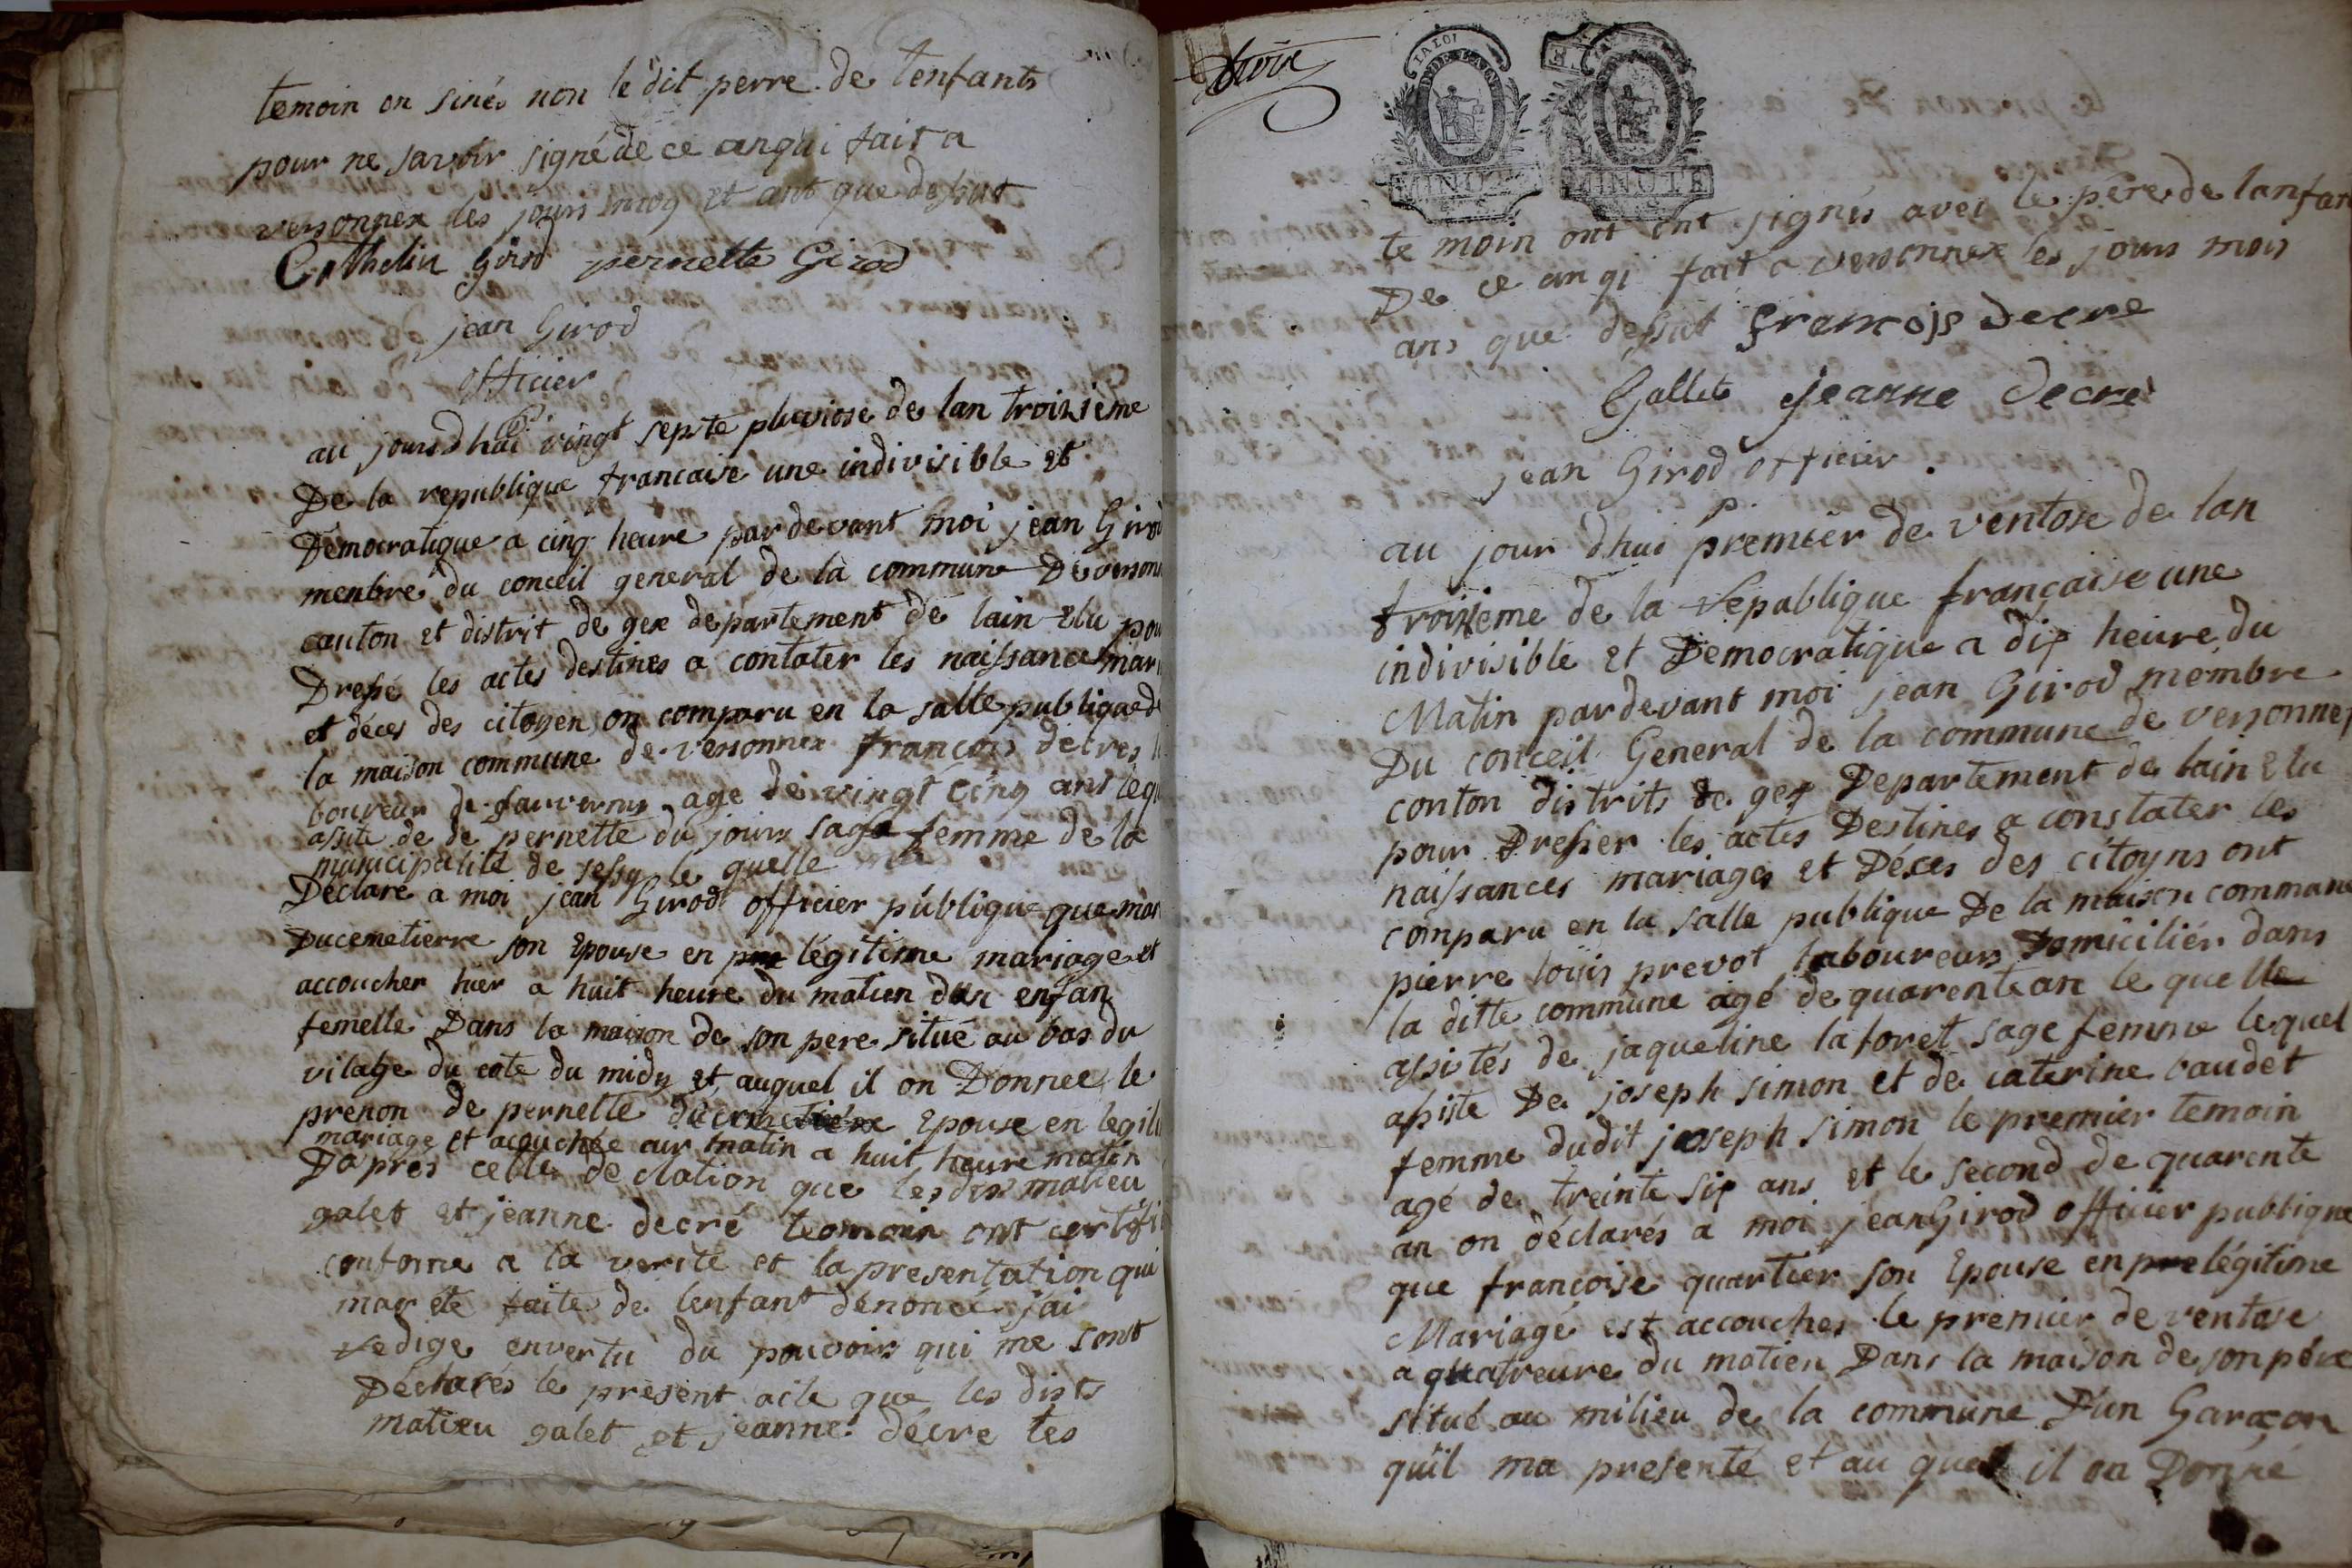 temoin on sinés non le dit perre de lenfants
pour ne savoir signé de ce anqui fait a
versonnex les jours moy et ant que dessut
Cathelin Girod pernette Girod
jean Girod
officier
au jourdhui vingt septe pluviose de lan troisième
De la republique francaise une indivisible et
Democratique a cinq heure par devant moi jean Girod
menbre du conceil general de la commune De verson
canton et distrit de gex departement de lain Elu pou
Dressé les actes destines a contater les naissances mari
et déces des citoyen on comparu en la salle publique de
la maison commune de versonnex françois decres l
boureur de sauverny age de vingt cinq ans lequ
assite de de pernette du jours sage femme de la
municipalité de sessy le quelle
Déclaré a moi jean Girod officier publique que mar
Ducemetierre son Epouse en pre légitime mariage et
accoucher hier a huit heure du matien dun enfan
femelle Dans la maison de son pere situé au bas du
vilage du cote du midy et auquel il on Donnee le
prenon de pernette Epouse en legiti
mariage et acouchée aur matin a huit heure matin
Dapres cette declation que les dits matieu
galet et jeanne decré temoin ont certifi
conforme a la verite et la presentation qui
mar été faite de lenfant denoncé jai
redige envertu du pouvoirs qui me sont
Déclarés le présent acte que les dists
matieu galet et jeanne décre tes
LA LOI
MINUTE
MINUTE
te moin ont ont signés avec le père de lanfan
De ce an qi fait a versonnex les jours mois
ans que dessut françois decre
Gallet jeanne decré
jean Girod officier
au jour dhui premier de ventose de lan
troisieme de la Republique française une
indivisible et Democratique a dix heure du
Matin pardevant moi jean Girod membre
Du conceil General de la commune de versonnex
conton distrits de gex Departement de lain Elu
pour Dresser les actes Destines a constater les
naissances mariages et Déces des citoyns ont
comparu en la salle publique De la maison commune
pierre louis prevot laboureurs Domiciliér dans
la ditte commune agé de quarente an le quelle
assistés de jaqueline laforet sage femme lequel
assiste De joseph simon et de caterine baudet
femme dudit joseph simon le premier temoin
agé de treinte six ans et le second de quarente
an on déclarés a moi jean Girod officier publique
que françoise quartier son Epouse en pre légitime
Mariagé est accouches le premier de ventose
a quatreure du matien Dans la maison de son père
situé au milieu de la commune D'un Garaçon
qu'il ma presenté et au quel il on Donné